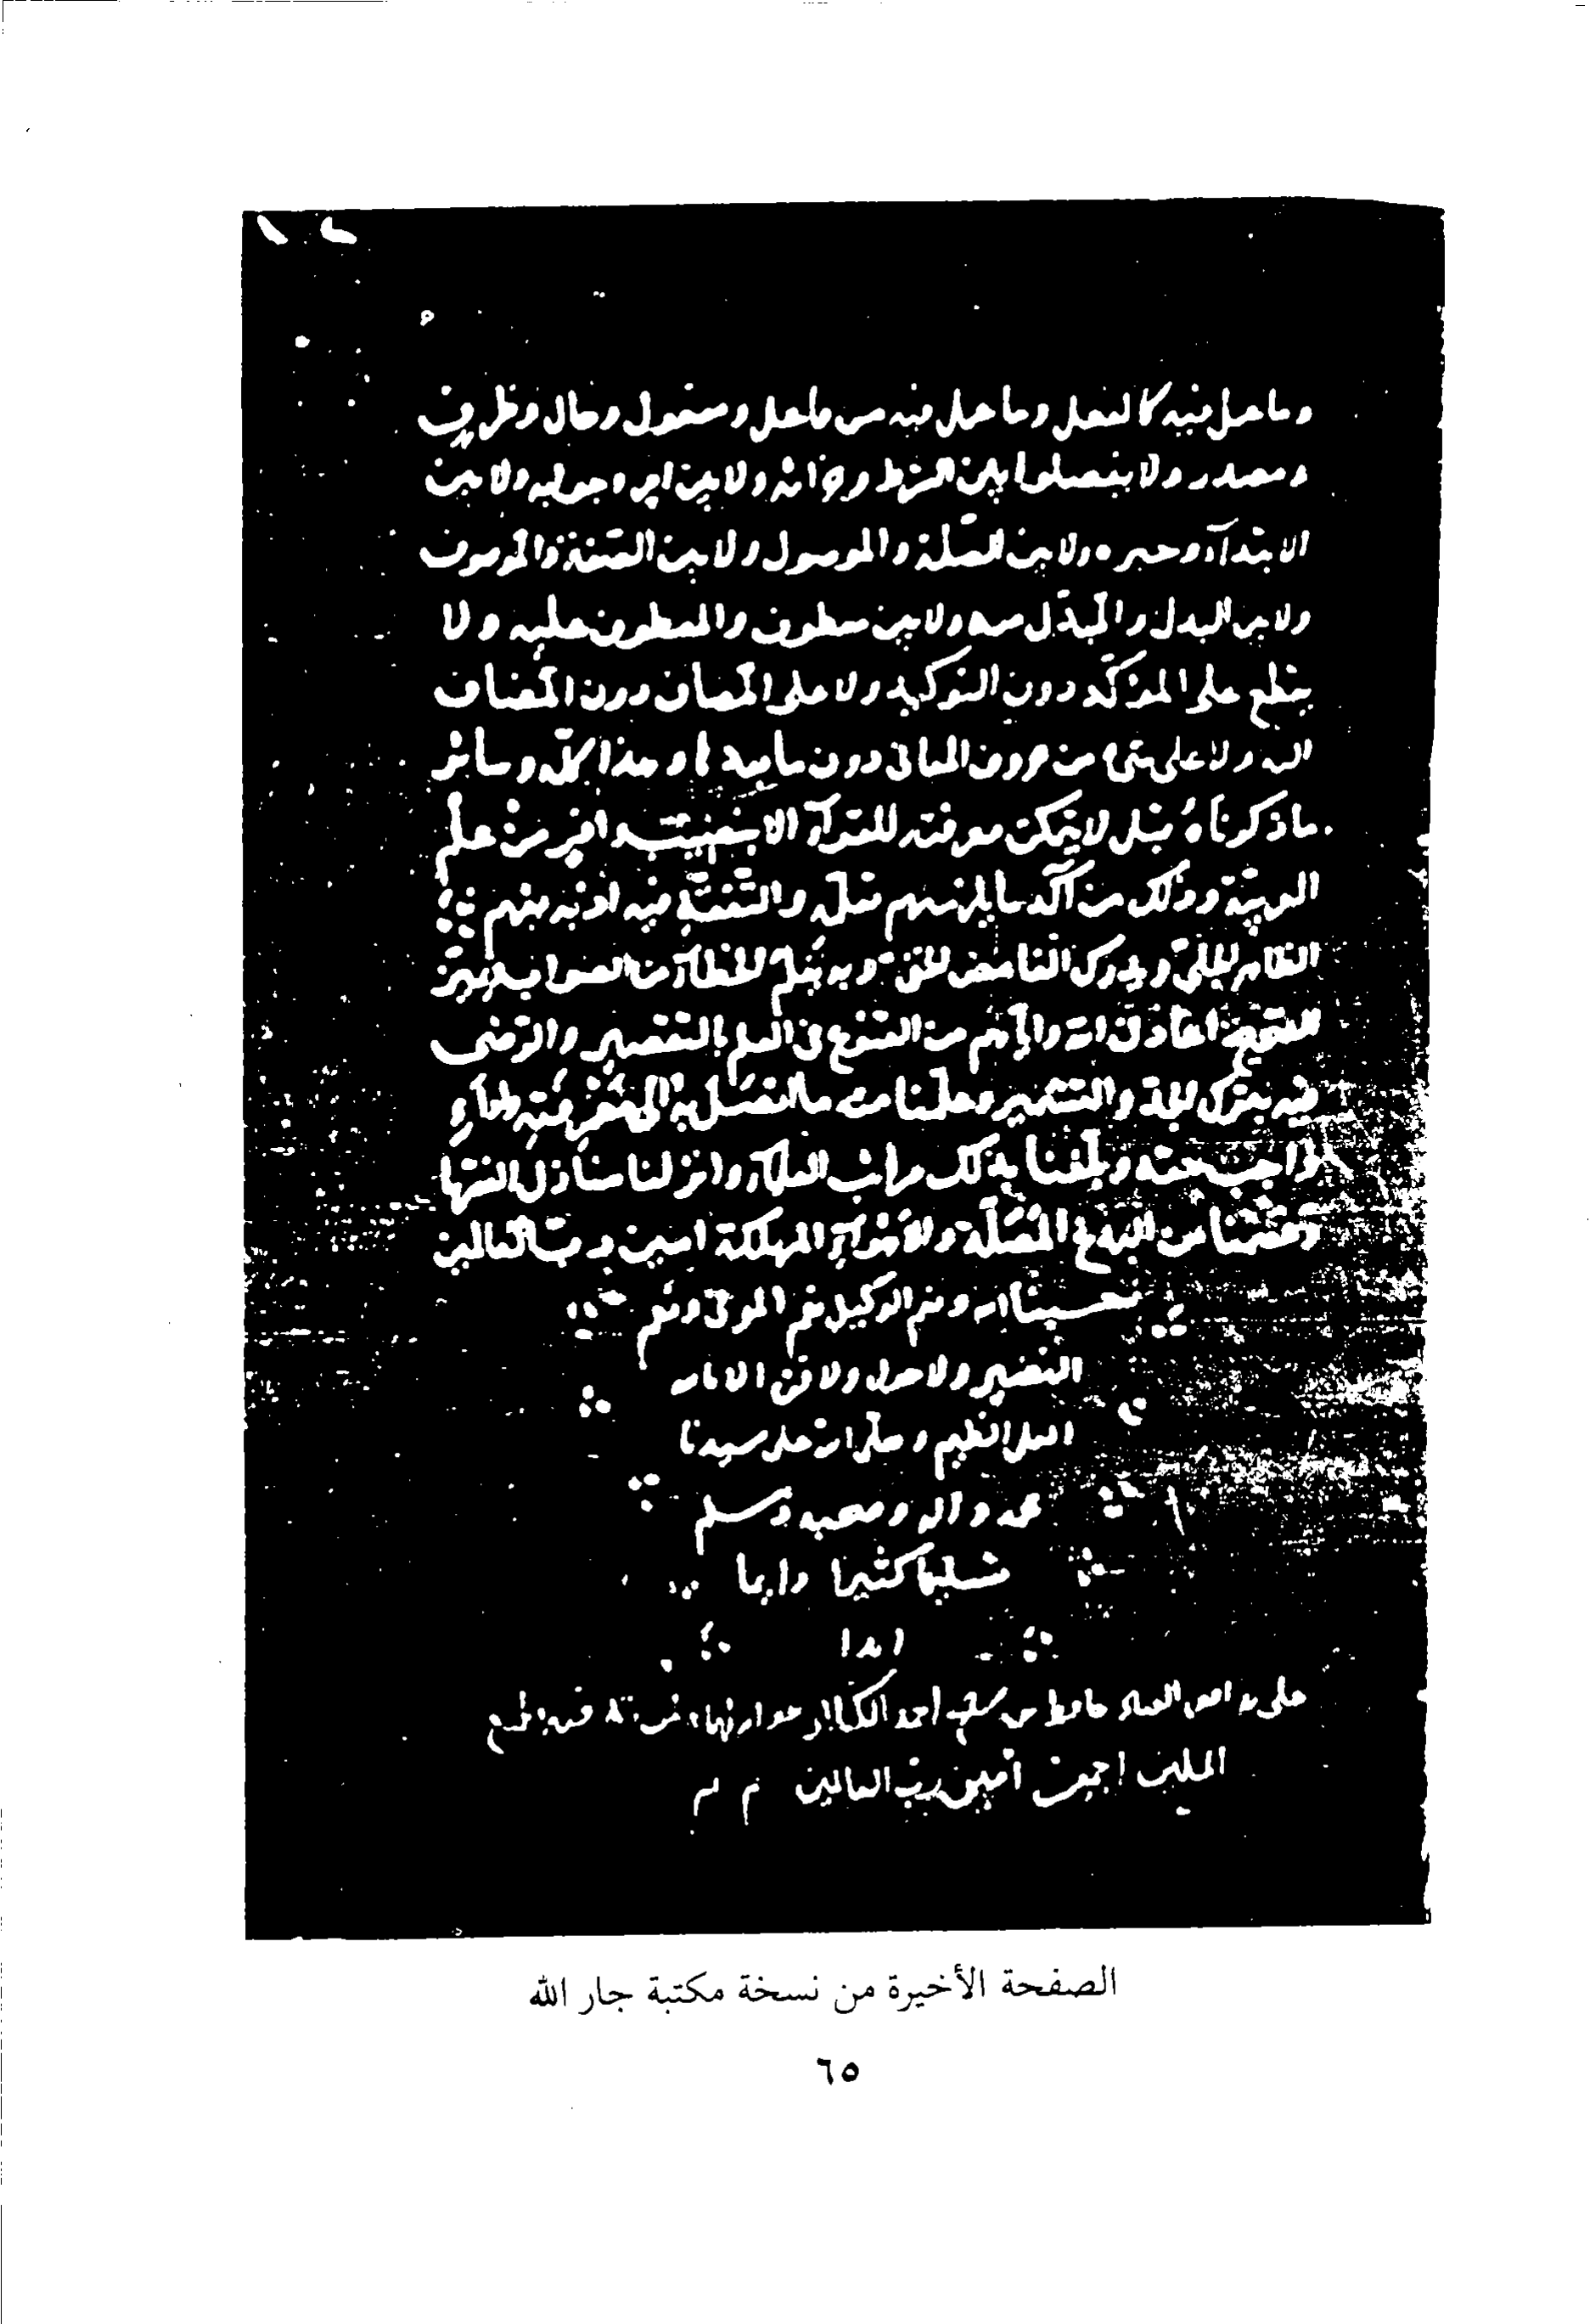 وما عمل فيه كالفعل وما عمل فيه من فاعل ومفعول وحال وظرف
ومصدر ولا يفصلوا بين الشرط وجزائه ولا بين امر وجوابه ولا بين
الابتداء وخبره ولا بين الصلة والموصول ولا بين الصفة والموصوف
ولا بين البدل والمبدل منه ولا بين معطوف والمعطوف عليه ولا
يقطع على المؤكد دون التوكيد ولا على المضاف دون المضاف
اليه ولا على شيء من حروف المعاني دون ما بعدها وهذا كله وسائر
ما ذكرناه قبل لا يتمكن معرفته للقرآء الا بنصيب وافر من علم
العربية وذلك من آكد ما يلزمهم تعلمه والتفقه فيه اذ به يفهم
الظاهر الجلي ويدرك الغامض الخفي وبه يعلم الخطأ من الصواب ويميز
الله واياكم من القنوع في العلم بالتقصير والرضى
فيه بترك الجد والتشمير وجعلنا ممن
وبلغنا بذلك مراتب العلمآء وانزلنا منازل الفقها
وعصمنا من البدع المضلة والاهوآء المهلكة امين رب العالمين
حسبنا الله ونعم الوكيل نعم المولى ونعم
النصير ولا حول ولا قوة الا بالله
العلي العظيم وصلى الله على سيدنا
محمد وآله وصحبه وسلم
تسليما كثيرا دايما
ابدا
على يد اضعف العباد حافظ
المسلمين اجمعين آمين رب العالمين
الصفحة الأخيرة من نسخة مكتبة جار الله
٦٥